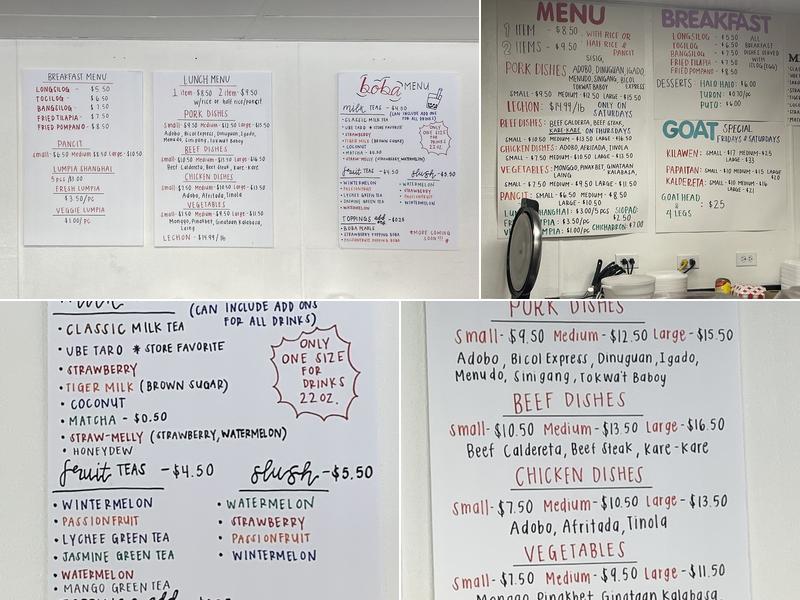 BREAKFAST MENU
LONGSILOG - $5.50
TOCILOG - $6.50
BANGSILOG - $7.50
FRIED TILAPIA - $7.50
FRIED POMPANO - $8.50
PANCIT
Small - $6.50 Medium $8.50 Large - $10.50
LUMPIA SHANGHAI
5pcs $3.00
FRESH LUMPIA
$3.50/pc
VEGGIE LUMPIA
$1.00/pc
LUNCH MENU
1 item - $8.50 2 item - $9.50
w/rice or half rice/pancit
PORK DISHES
Small - $9.50 Medium - $12.50 Large - $15.50
Adobo, Bicol Express, Dinuguan, Igado,
Menudo, Sinigang, Tokwa't Baboy
BEEF DISHES
Small - $10.50 Medium - $13.50 Large - $16.50
Beef Caldereta, Beef Steak, Kare-Kare
CHICKEN DISHES
Small - $7.50 Medium - $10.50 Large - $13.50
Adobo, Afritada, Tinola
VEGETABLES
Small - $7.50 Medium - $9.50 Large - $11.50
Monggo, Pinakbet, Ginataan Kalabasa,
Laing
LECHON - $14.99/lb
boba MENU
milk TEAS - $4.00
(CAN INCLUDE ADD ONS
FOR ALL DRINKS)
• CLASSIC MILK TEA
• UBE TARO * STORE FAVORITE
• STRAWBERRY
• TIGER MILK (BROWN SUGAR)
• COCONUT
• MATCHA - $0.50
• STRAW-MELLY (STRAWBERRY, WATERMELON)
ONLY
ONE SIZE
FOR
DRINKS
22 OZ.
fruit TEAS - $4.50
• WINTERMELON
• PASSIONFRUIT
• LYCHEE GREEN TEA
• JASMINE GREEN TEA
• WATERMELON
slush - $5.50
• WATERMELON
• STRAWBERRY
• PASSIONFRUIT
• WINTERMELON
TOPPINGS add ... $0.25
• BOBA PEARLS
• STRAWBERRY POPPING BOBA
• PASSIONFRUIT POPPING BOBA
*MORE COMING
SOON!!!
MENU
1 ITEM - $8.50
2 ITEMS - $9.50
WITH RICE OR
HALF RICE &
PANCIT
PORK DISHES
SISIG,
ADOBO, DINUGUAN, IGADO,
MENUDO, SINIGANG, BICOL
TOKWAT BABOY EXPRESS
SMALL - $9.50 MEDIUM - $12.50 LARGE - $15.50
LECHON: $14.99/lb ONLY ON
SATURDAYS
BEEF DISHES: BEEF CALDERETA, BEEF STEAK,
KARE-KARE ON THURSDAYS
SMALL - $10.50 MEDIUM - $13.50 LARGE - $16.50
CHICKEN DISHES: ADOBO, AFRITADA, TINOLA
SMALL - $7.50 MEDIUM - $10.50 LARGE - $13.50
VEGETABLES: MONGGO, PINAKBET, GINATAAN
LAING KALABASA,
SMALL - $7.50 MEDIUM - $9.50 LARGE - $11.50
PANCIT: SMALL - $6.50 MEDIUM - $8.50
LARGE - $10.50
SHANGHAI: $3.00/5 PCS SIOPAO:
$3.50/PC 2.50
$1.00/PC CHICHARON: $7.00
BREAKFAST
LONGSILOG - $5.50
TOCILOG - $6.50
BANGSILOG - $7.50
FRIED TILAPIA - $7.50
FRIED POMPANO - $8.50
ALL
BREAKFAST
DISHES SERVED
WITH
SILOG (EGG)
DESSERTS: HALO HALO: $6.00
TURON: $0.70/PC
PUTO: $6.00
GOAT SPECIAL
FRIDAYS & SATURDAYS
KILAWEN: SMALL - $17 MEDIUM - $25
LARGE - $33
PAPAITAN: SMALL - $10 MEDIUM - $15 LARGE
$20
KALDERETA: SMALL - $10 MEDIUM - $16
LARGE - $21
GOAT HEAD
&
4 LEGS
$25
(CAN INCLUDE ADD ONS
FOR ALL DRINKS)
• CLASSIC MILK TEA
• UBE TARO * STORE FAVORITE
• STRAWBERRY
• TIGER MILK (BROWN SUGAR)
• COCONUT
• MATCHA - $0.50
• STRAW-MELLY (STRAWBERRY, WATERMELON)
• HONEYDEW
ONLY
ONE SIZE
FOR
DRINKS
22 OZ.
fruit TEAS - $4.50
• WINTERMELON
• PASSIONFRUIT
• LYCHEE GREEN TEA
• JASMINE GREEN TEA
• WATERMELON
• MANGO GREEN TEA
slush - $5.50
• WATERMELON
• STRAWBERRY
• PASSIONFRUIT
• WINTERMELON
PORK DISHES
Small - $9.50 Medium - $12.50 Large - $15.50
Adobo, Bicol Express, Dinuguan, Igado,
Menudo, Sinigang, Tokwa't Baboy
BEEF DISHES
Small - $10.50 Medium - $13.50 Large - $16.50
Beef Caldereta, Beef Steak, Kare-Kare
CHICKEN DISHES
Small - $7.50 Medium - $10.50 Large - $13.50
Adobo, Afritada, Tinola
VEGETABLES
Small - $7.50 Medium - $9.50 Large - $11.50
Monggo, Pinakbet, Ginataan Kalabasa,